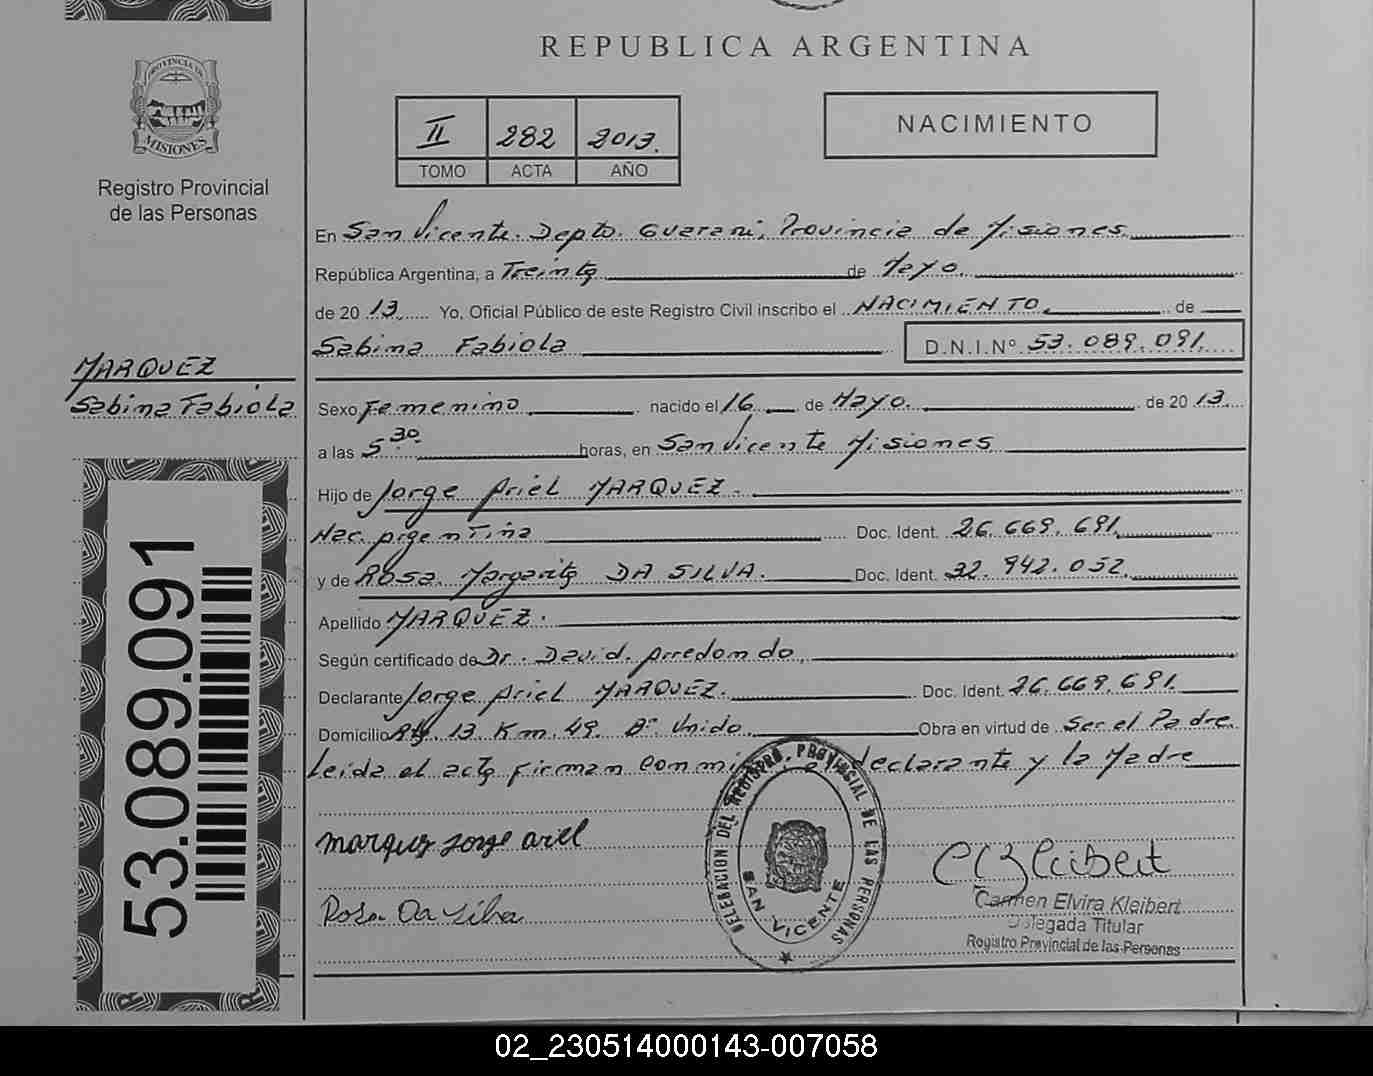 REPUBLICA ARGENTINA
PROVINCIA DE
MISIONES
Registro Provincial
de las Personas
II 282 2013.
TOMO ACTA AÑO
NACIMIENTO
En San Vicente. Depto. Guarani, Provincia de Misiones
República Argentina, a Treinta de Mayo.
de 20 13. Yo, Oficial Público de este Registro Civil inscribo el NACIMIENTO. de
Sabina Fabiola D.N.I.Nº 53.089.091.
MARQUEZ
Sabina Fabiola
Sexo Femenino nacido el 16 de Mayo. de 20 13.
a las 5 30 horas, en San Vicente Misiones
Hijo de Jorge Ariel MARQUEZ.
Nac. Argentina Doc. Ident. 26.669.691.
y de ROSA. Margarita DA SILVA. Doc. Ident. 32.942.052.
Apellido MARQUEZ.
Según certificado de Dr. David. Arredondo.
Declarante Jorge Ariel MARQUEZ. Doc. Ident. 26.669.691.
Domicilio Rta. 13 Km. 49. Bº Unido. Obra en virtud de Ser el Padre.
Leida el acta firman conmigo declarante y la Madre
marquez jorge ariel
Rosa Da Silva
DELEGACION DEL REGISTRO PROVINCIAL DE LAS PERSONAS
SAN VICENTE
C E Kleibert
Carmen Elvira Kleibert
Delegada Titular
Registro Provincial de las Personas
53.089.091
02_230514000143-007058